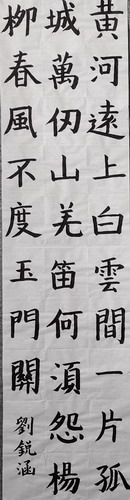 黃河遠上白雲間一片孤
城萬仞山羌笛何須怨楊
柳春風不度玉門關
劉銳涵